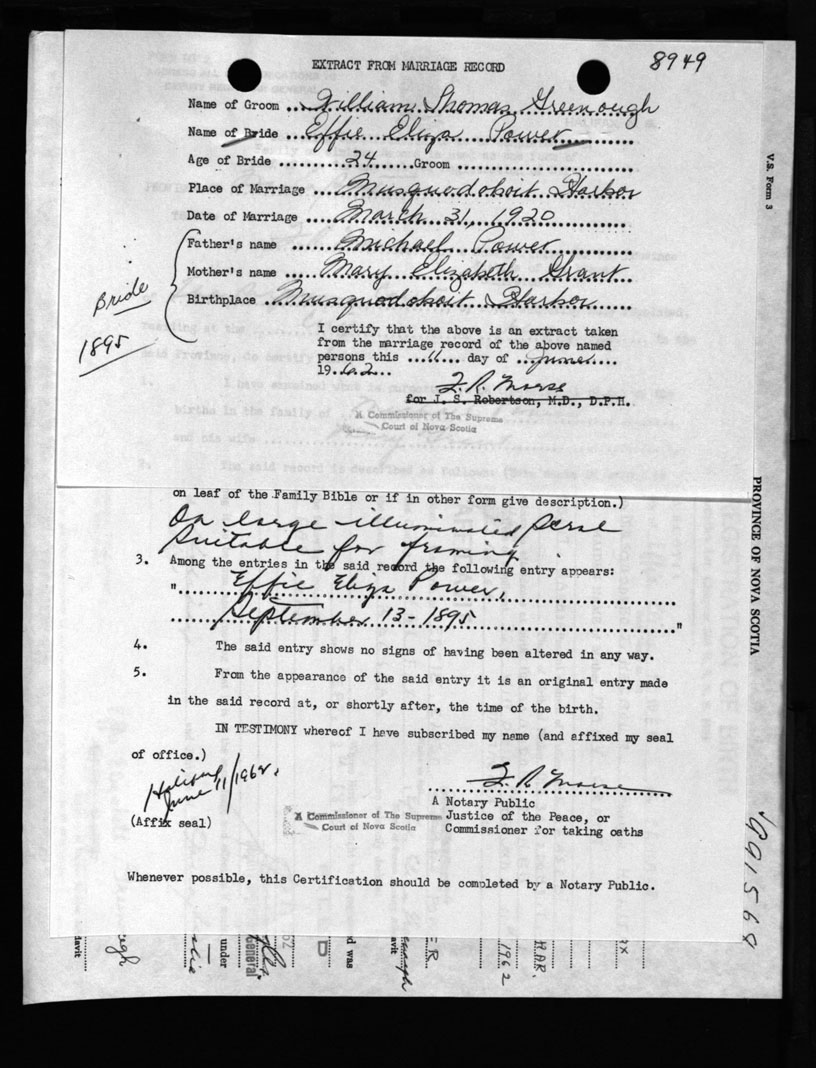 EXTRACT FROM MARRIAGE RECORD
8949
Name of Groom ... William Thomas Greenough
Name of Bride ... Effie Eliza Power
Age of Bride ......... 24 ...... Groom ..........
Place of Marriage ... Musquodoboit Harbor
Date of Marriage ... March 31, 1920
Father's name ...... Michael Power
Mother's name ...... Mary Elizabeth Grant
Birthplace .. Musquodoboit Harbor
Bride
1895
I certify that the above is an extract taken
from the marriage record of the above named
persons this ... 11 ... day of ... June ...
19.62...
F. R. Morse
for J. S. Robertson, M.D., D.P.H.
A Commissioner of The Supreme
Court of Nova Scotia
V.S. Form 3
PROVINCE OF NOVA SCOTIA
on leaf of the Family Bible or if in other form give description.)
On large illuminated
suitable for framing
3. Among the entries in the said record the following entry appears:
" Effie Eliza Power,
September 13 - 1895 "
4. The said entry shows no signs of having been altered in any way.
5. From the appearance of the said entry it is an original entry made
in the said record at, or shortly after, the time of the birth.
IN TESTIMONY whereof I have subscribed my name (and affixed my seal
of office.)
Halifax
June 11/1962.
F. R. Morse
(Affix seal)
A Commissioner of The Supreme
Court of Nova Scotia
A Notary Public
Justice of the Peace, or
Commissioner for taking oaths
991568
Whenever possible, this Certification should be completed by a Notary Public.
under
General
d was
D
E.R.
1962
HAR.